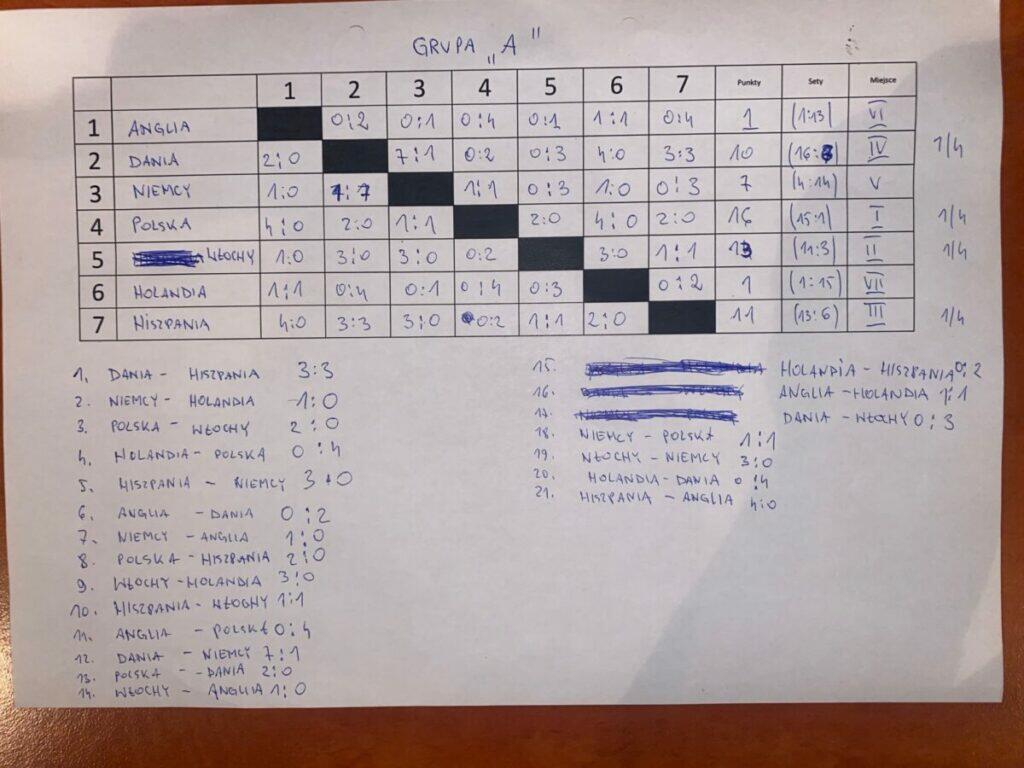 GRUPA „A"
1 2 3 4 5 6 7 Punkty Sety Miejsce
1 ANGLIA 0:2 0:1 0:4 0:1 1:1 0:4 1 (1:13) VI
2 DANIA 2:0 7:1 0:2 0:3 4:0 3:3 10 (16:8) IV 1/4
3 NIEMCY 1:0 1:7 1:1 0:3 1:0 0:3 7 (4:14) V
4 POLSKA 4:0 2:0 1:1 2:0 4:0 2:0 16 (15:1) I 1/4
5 WŁOCHY 1:0 3:0 3:0 0:2 3:0 1:1 13 (11:3) II 1/4
6 HOLANDIA 1:1 0:4 0:1 0:4 0:3 0:2 1 (1:15) VII
7 HISZPANIA 4:0 3:3 3:0 0:2 1:1 2:0 11 (13:6) III 1/4
1. DANIA - HISZPANIA 3:3
2. NIEMCY - HOLANDIA 1:0
3. POLSKA - WŁOCHY 2:0
4. HOLANDIA - POLSKA 0:4
5. HISZPANIA - NIEMCY 3:0
6. ANGLIA - DANIA 0:2
7. NIEMCY - ANGLIA 1:0
8. POLSKA - HISZPANIA 2:0
9. WŁOCHY - HOLANDIA 3:0
10. HISZPANIA - WŁOCHY 1:1
11. ANGLIA - POLSKA 0:4
12. DANIA - NIEMCY 7:1
13. POLSKA - DANIA 2:0
14. WŁOCHY - ANGLIA 1:0
15. HOLANDIA - HISZPANIA 0:2
16. ANGLIA - HOLANDIA 1:1
17. DANIA - WŁOCHY 0:3
18. NIEMCY - POLSKA 1:1
19. WŁOCHY - NIEMCY 3:0
20. HOLANDIA - DANIA 0:4
21. HISZPANIA - ANGLIA 4:0